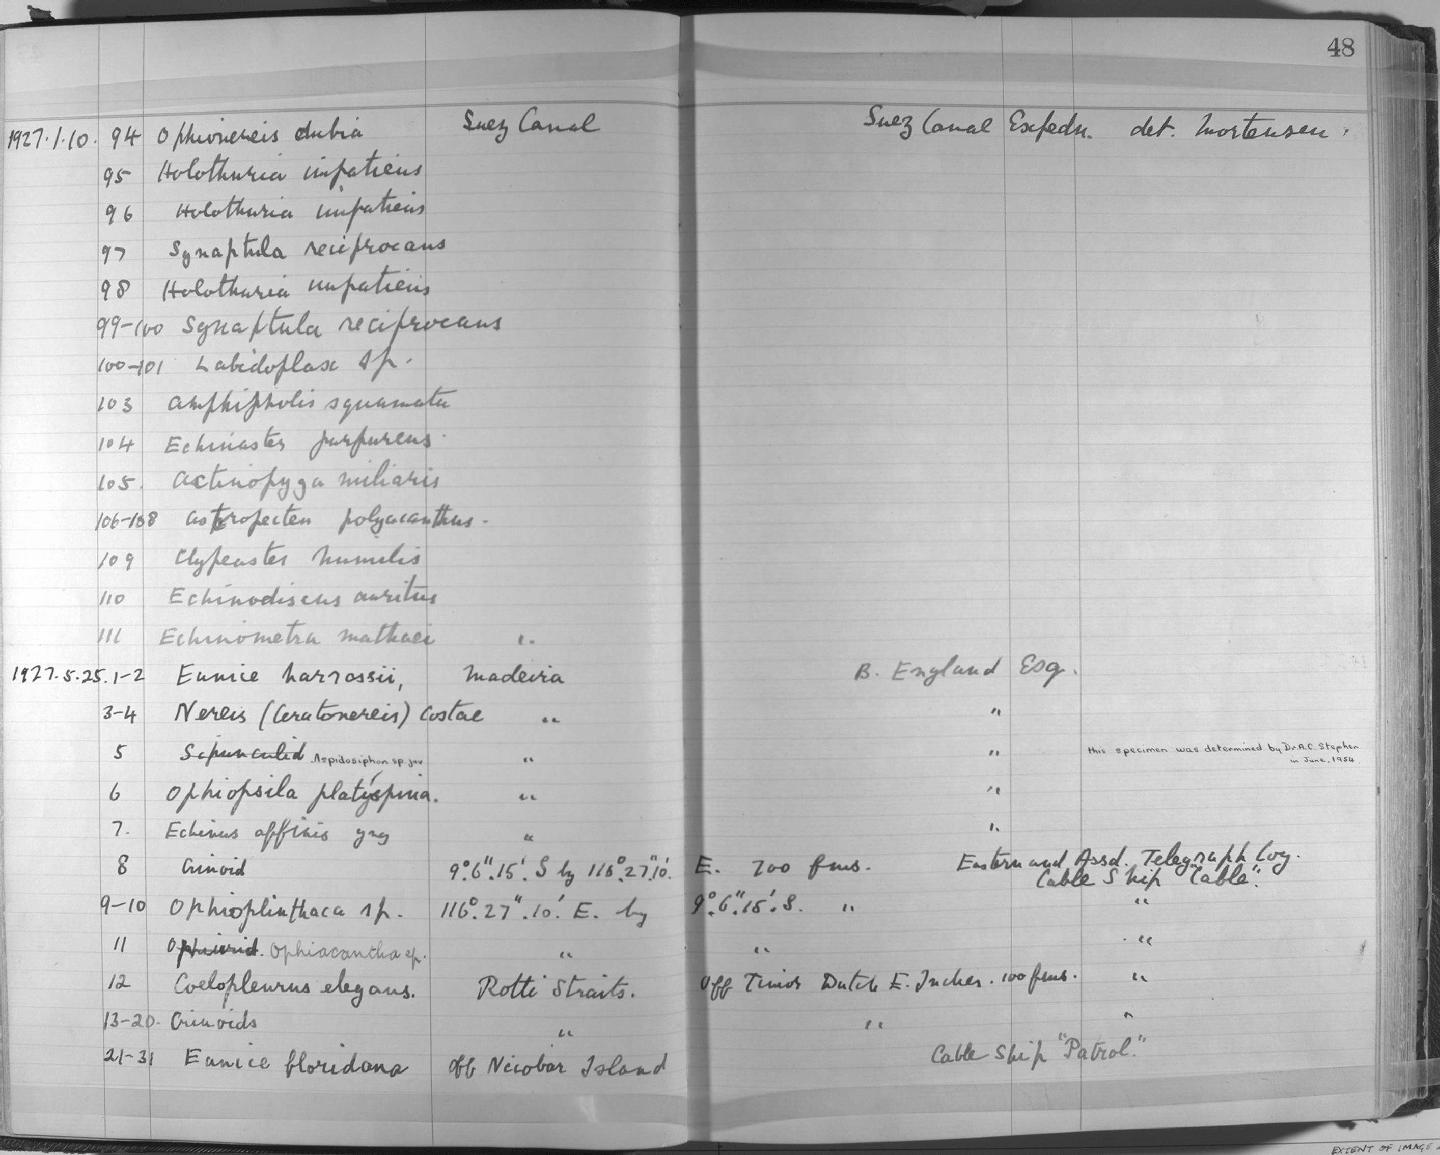 48
1927.1.10. 94 Ophionereis dubia Suez Canal Suez Canal Expedn. det. Mortensen.
95 Holothuria impatiens
96 Holothuria impatiens
97 Synaptula reciprocans
98 Holothuria impatiens
99-100 Synaptula reciprocans
100-101 Labidoplax sp.
103 Amphipholis squamata
104 Echinaster purpureus
105. Actinopyga miliaris
106-108 Astropecten polyacanthus.
109 Clypeaster humilis
110 Echinodiscus auritus
111 Echinometra mathaei "
1927.5.25.1-2 Eunice harrassii, Madeira B. England Esq.
3-4 Nereis (Ceratonereis) costae " "
5 Sipunculid Aspidosiphon sp. juv " " This specimen was determined by Dr A.C. Stephen
in June, 1954.
6 Ophiopsila platyspina. " "
7. Echinus affinis " "
8 Crinoid 9°.6".15'. S by 116°.27".10'. E. 700 fms. Eastern and Assd. Telegraph Coy.
Cable Ship "Cable".
9-10 Ophioplinthaca sp. 116°.27".10'. E. by 9°.6".15'.S. " "
11 Ophiurid. Ophiacantha sp. " " "
12 Coelopleurus elegans. Rotti Straits. Off Timor Dutch E. Indies. 100 fms. "
13-20. Crinoids " " "
21-31 Eunice floridana off Nicobar Island Cable Ship "Patrol."
EXTENT OF IMAGE